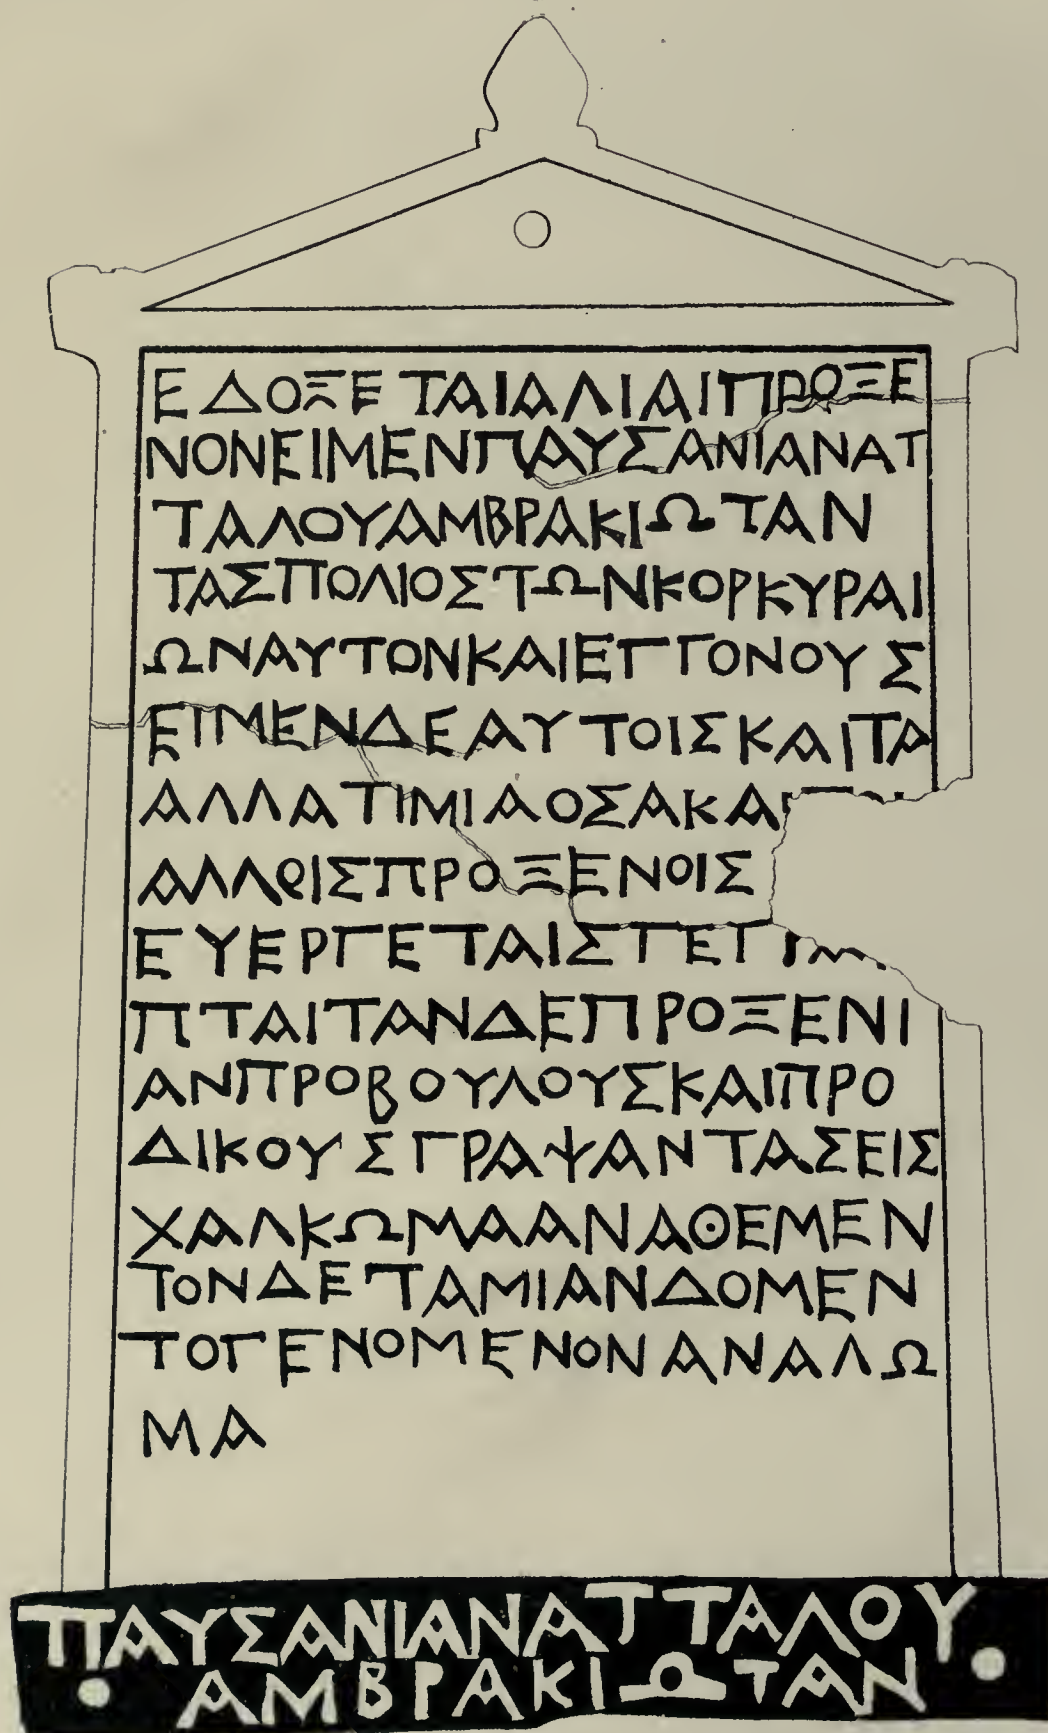 ΕΔΟΞΕΤΑΙΑΛΙΑΙΠΡΟΞΕ
ΝΟΝΕΙΜΕΝΠΑΥΣΑΝΙΑΝΑΤ
ΤΑΛΟΥΑΜΒΡΑΚΙΩΤΑΝ
ΤΑΣΠΟΛΙΟΣΤΩΝΚΟΡΚΥΡΑΙ
ΩΝΑΥΤΟΝΚΑΙΕΓΓΟΝΟΥΣ
ΕΙΜΕΝΔΕΑΥΤΟΙΣΚΑΙΤΑ
ΑΛΛΑΤΙΜΙΑΟΣΑΚΑΙ
ΑΛΛΟΙΣΠΡΟΞΕΝΟΙΣ
ΕΥΕΡΓΕΤΑΙΣΓΕΓ
ΠΤΑΙΤΑΝΔΕΠΡΟΞΕΝΙ
ΑΝΠΡΟΒΟΥΛΟΥΣΚΑΙΠΡΟ
ΔΙΚΟΥΣΓΡΑΨΑΝΤΑΣΕΙΣ
ΧΑΛΚΩΜΑΑΝΑΘΕΜΕΝ
ΤΟΝΔΕΤΑΜΙΑΝΔΟΜΕΝ
ΤΟΓΕΝΟΜΕΝΟΝΑΝΑΛΩ
ΜΑ
ΠΑΥΣΑΝΙΑΝΑΤΤΑΛΟΥ
ΑΜΒΡΑΚΙΩΤΑΝ